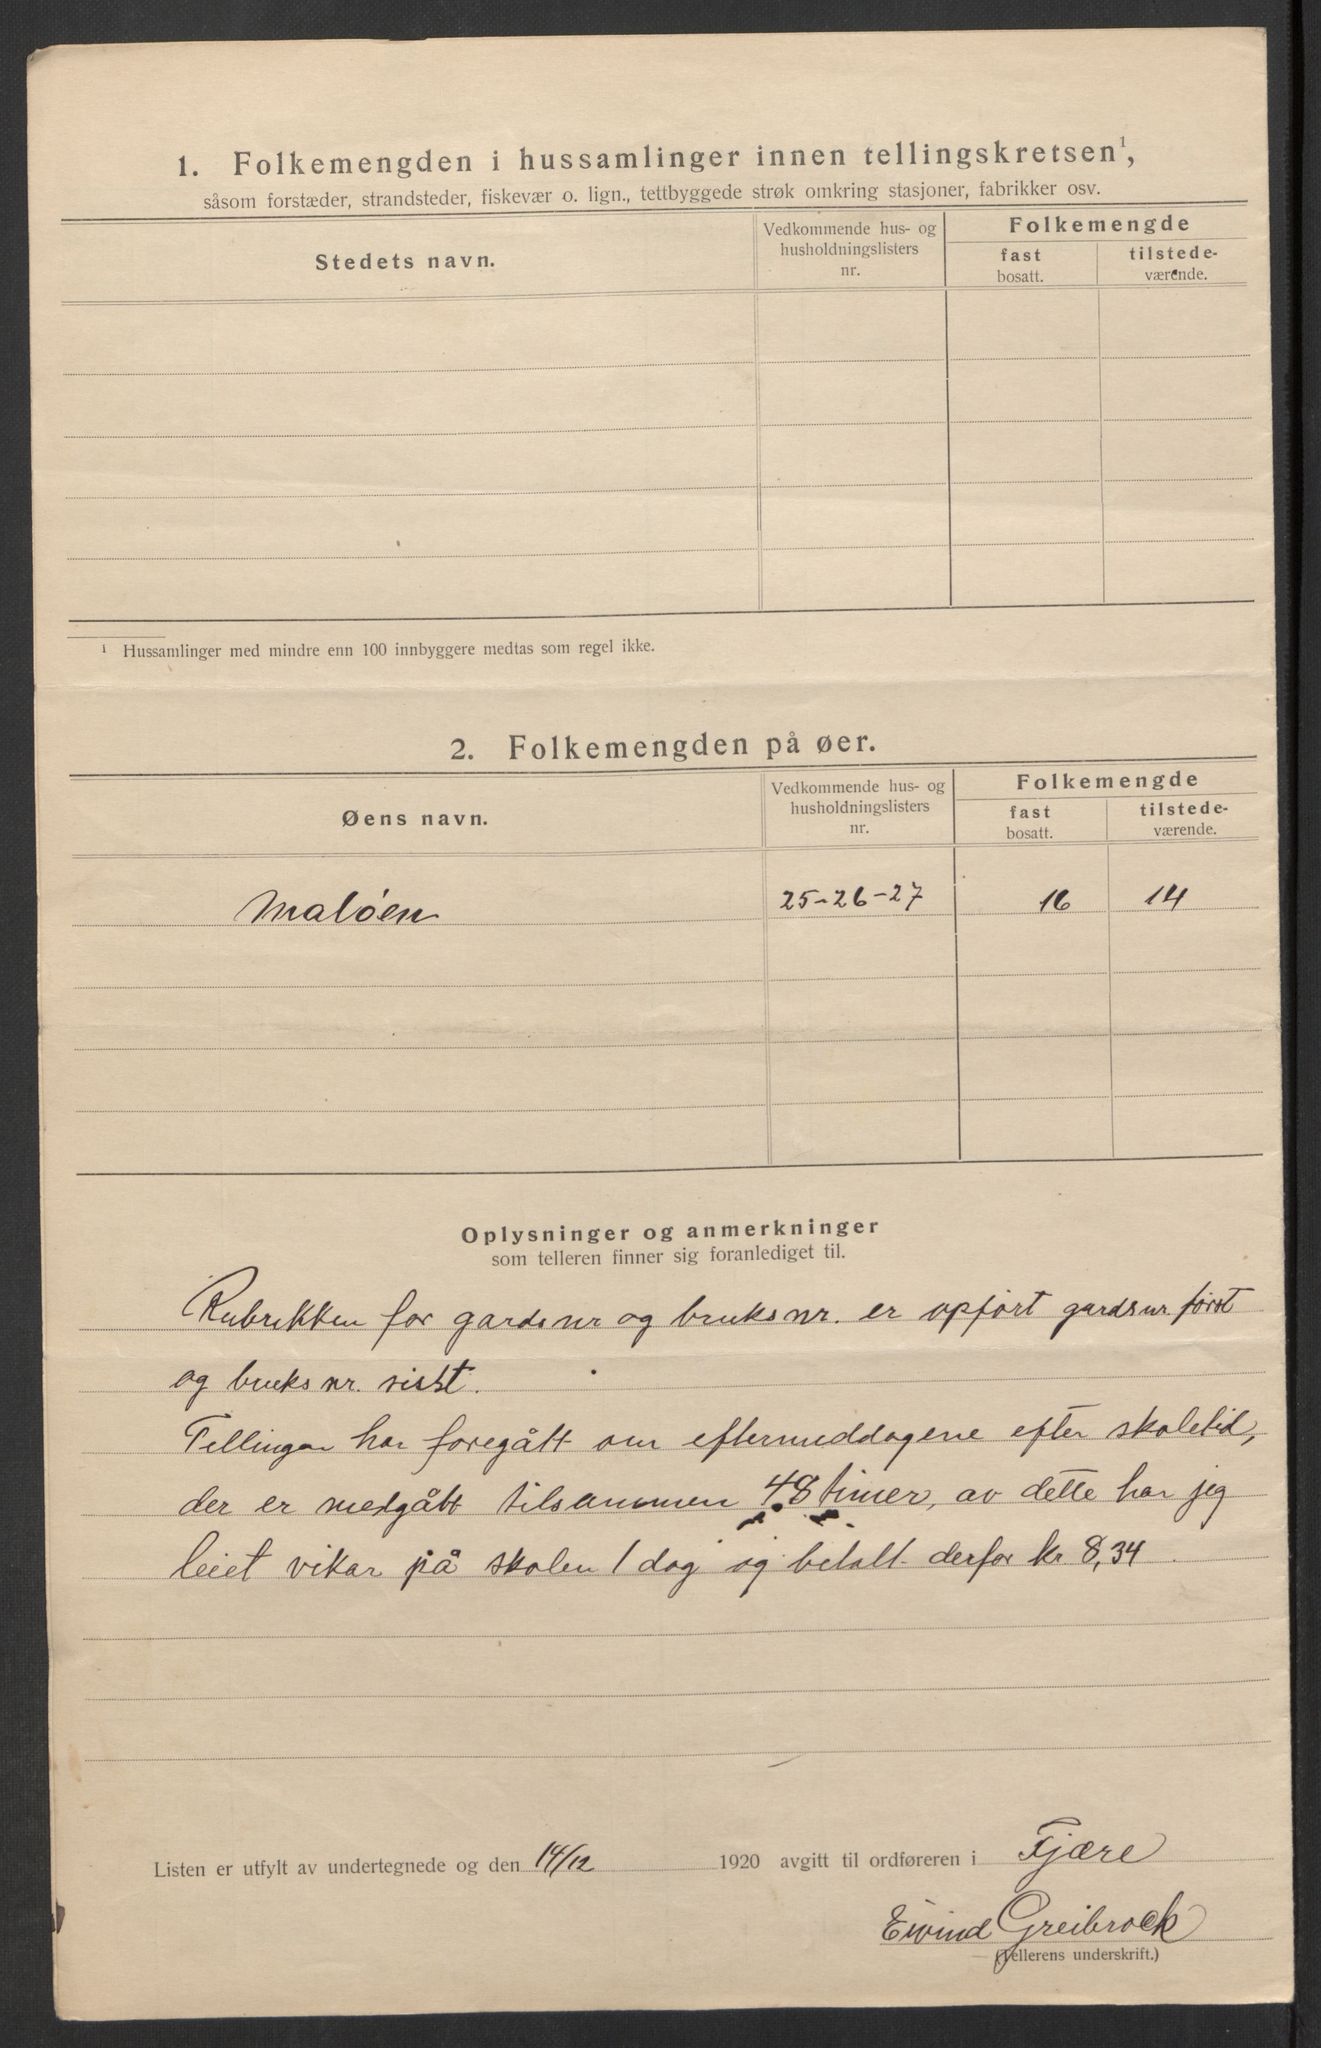 1. Folkemengden i hussamlinger innen tellingskretsen¹,
såsom forstæder, strandsteder, fiskevær o. lign., tettbyggede strøk omkring stasjoner, fabrikker osv.
Stedets navn.
Vedkommende hus- og
husholdningslisters
nr.
Folkemengde
fast
bosatt.
tilstede-
værende.
¹ Hussamlinger med mindre enn 100 innbyggere medtas som regel ikke.
2. Folkemengden på øer.
Øens navn.
Vedkommende hus- og
husholdningslisters
nr.
Folkemengde
fast
bosatt.
tilstede-
værende.
Maløen 25-26-27 16 14
Oplysninger og anmerkninger
som telleren finner sig foranlediget til.
Rubrikken for gardsnr og bruksnr. er opført gardsnr først
og bruksnr. sisst.
Tellingen har foregått om eftermeddagene efter skoletid,
der er medgått tilsammen 48 timer, av dette har jeg
leiet vikar på skolen 1 dag og betalt derfor kr 8,34
Listen er utfylt av undertegnede og den 14/12 1920 avgitt til ordføreren i Fjære
Eivind Greibrock
(Tellerens underskrift.)